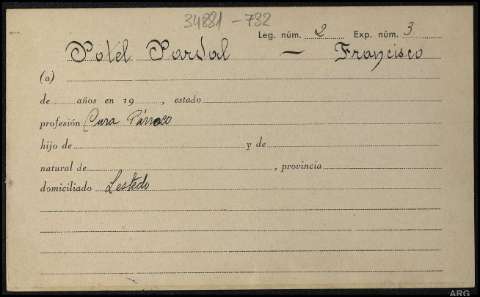 34881-732
Leg. núm. 2 Exp. núm. 3
Potél Pardal — Francisco
(a)
de años en 19 , estado
profesión Cura Párroco
hijo de y de
natural de , provincia
domiciliado Lestedo
ARG